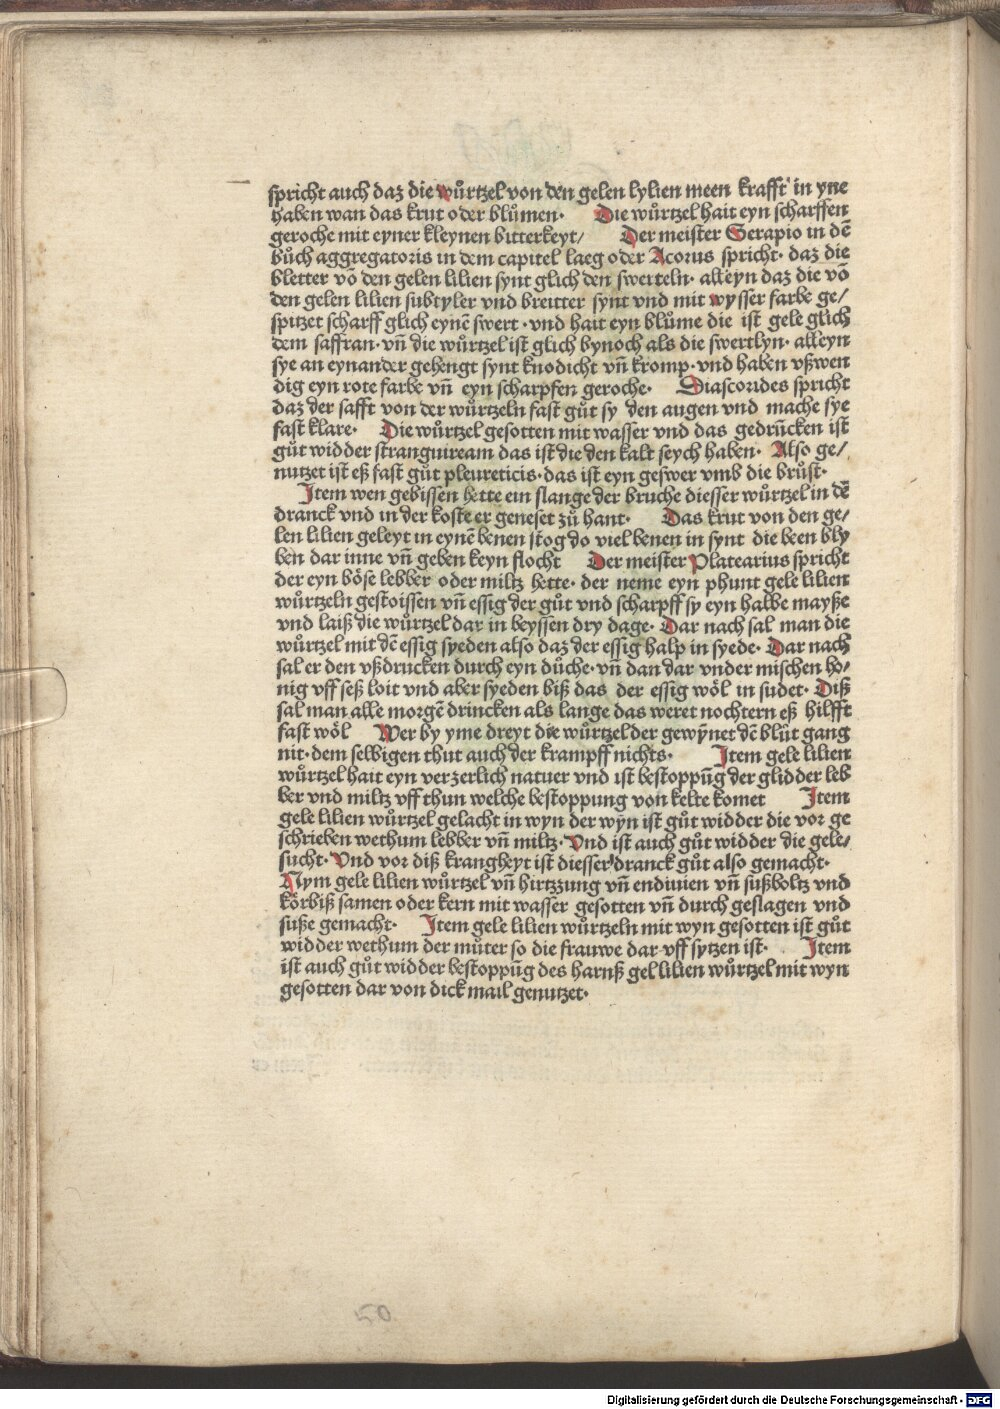 spricht auch daz die wůrtzel von den gelen lylien meen krafft in yne
haben wan das krut oder blůmen· Die wůrtzel hait eyn scharffen
geroche mit eyner kleynen bitterkeyt/ Der meister Serapio in dē
bůch aggregatoris in dem capitel laeg oder Acorus spricht· daz die
bletter vō den gelen lilien synt glich den swerteln· alleyn daz die vō
den gelen lilien subtyler vnd breitter synt vnd mit wysser farbe ge/
spitzet scharff glich eynē swert·vnd hait eyn blůme die ist gele glich
dem saffran·vn̄ die wůrtzel ist glich bynoch als die swertlyn·alleyn
sye an eynander gehengt synt knodicht vn̄ kromp·vnd haben vßwen
dig eyn rote farbe vn̄ eyn scharpfen geroche· Diascorides spricht
daz der safft von der wůrtzeln fast gůt sy den augen vnd mache sye
fast klare· Die wůrtzel gesotten mit wasser vnd das gedrūcken ist
gůt widder stranguiream das ist die den kalt seych haben· Also ge/
nutzet ist eß fast gůt pleureticis·das ist eyn geswer vmb die brůst·
Item wen gebissen hette ein slange der bruche diesser wůrtzel in dē
dranck vnd in der koste er geneset zů hant· Das krut von den ge/
len lilien geleyt in eynē benen stog do viel benen in synt die been bly
ben dar inne vn̄ geben keyn flocht Der meister Platearius spricht
der eyn böse lebber oder miltz hette· der neme eyn phunt gele lilien
wůrtzeln gestoissen vn̄ essig der gůt vnd scharpff sy eyn halbe mayße
vnd laiß die wůrtzel dar in beyssen dry dage· Dar nach sal man die
wůrtzel mit dē essig syeden also daz der essig halp in syede· Dar nach
sal er den vßdrucken durch eyn důche·vn̄ dan dar vnder mischen ho/
nig vff seß loit vnd aber syeden biß das der essig wöl in sudet· Diß
sal man alle morgē drincken als lange das weret nochtern eß hilfft
fast wöl Wer by yme dreyt die wůrtzel der gewÿnet dē blůt gang
nit·dem selbigen thut auch der krampff nichts· Item gele lilien
wůrtzel hait eyn verzerlich natuer vnd ist bestoppūg der glidder leb
ber vnd miltz vff thun welche bestoppung von kelte komet Item
gele lilien wůrtzel gelacht in wyn der wÿn ist gůt widder die vor ge
schrieben wethum lebber vn̄ miltz·Vnd ist auch gůt widder die gele/
sucht·Vnd vor diß krangheyt ist diesser dranck gůt also gemacht·
Nym gele lilien wůrtzel vn̄ hirtzzung vn̄ endiuien vn̄ sußholtz vnd
körbiß samen oder kern mit wasser gesotten vn̄ durch geslagen vnd
suße gemacht· Item gele lilien wůrtzeln mit wyn gesotten ist gůt
widder wethum der můter so die frauwe dar vff sytzen ist· Item
ist auch gůt widder bestoppūg des harnß gel lilien wůrtzel mit wyn
gesotten dar von dick mail genutzet·
50
Digitalisierung gefördert durch die Deutsche Forschungsgemeinschaft - DFG